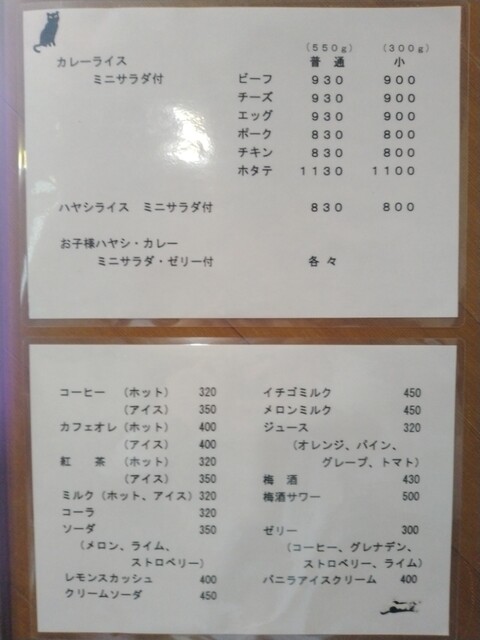 （５５０ｇ）　（３００ｇ）
カレーライス　普　通　小
ミニサラダ付　ビーフ　９３０　９００
チーズ　９３０　９００
エッグ　９３０　９００
ポーク　８３０　８００
チキン　８３０　８００
ホタテ　１１３０　１１００
ハヤシライス　ミニサラダ付　８３０　８００
お子様ハヤシ・カレー
ミニサラダ・ゼリー付　各々
コーヒー　（ホット）　320
（アイス）　350
カフェオレ（ホット）　400
（アイス）　400
紅　茶　（ホット）　320
（アイス）　350
ミルク（ホット、アイス）320
コーラ　320
ソーダ　350
（メロン、ライム、
ストロベリー）
レモンスカッシュ　400
クリームソーダ　450
イチゴミルク　450
メロンミルク　450
ジュース　320
（オレンジ、パイン、
グレープ、トマト）
梅　酒　430
梅酒サワー　500
ゼリー　300
（コーヒー、グレナデン、
ストロベリー、ライム）
バニラアイスクリーム　400